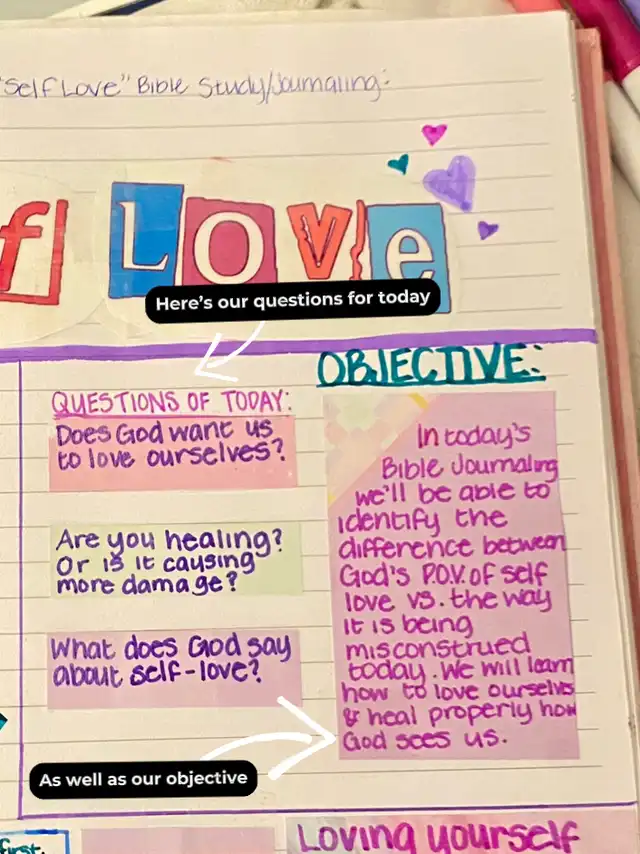 "Self Love" Bible Study/Journaling:
f Love
Here's our questions for today
QUESTIONS OF TODAY:
Does God want us
to love ourselves?
Are you healing?
Or is it causing
more damage?
What does God say
about self-love?
OBJECTIVE:
In today's
Bible Journaling
we'll be able to
identify the
difference between
God's P.O.V. of self
love vs. the way
it is being
misconstrued
today. We will learn
how to love ourselves
& heal properly how
God sees us.
As well as our objective
first.
Loving yourself